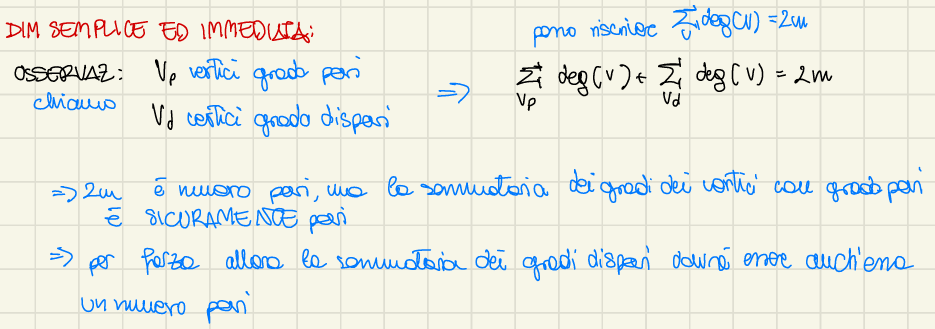 DIM SEMPLICE ED IMMEDIATA:
posso riscrivere ∑_v deg(v) = 2m
OSSERVAZ: V_p vertici grado pari
chiamo
V_d vertici grado dispari
=> ∑_{V_p} deg(v) + ∑_{V_d} deg(v) = 2m
=> 2m è numero pari, ma la sommatoria dei gradi dei vertici con grado pari
È SICURAMENTE pari
=> per forza allora la sommatoria dei gradi dispari dovrà essere anch'essa
un numero pari